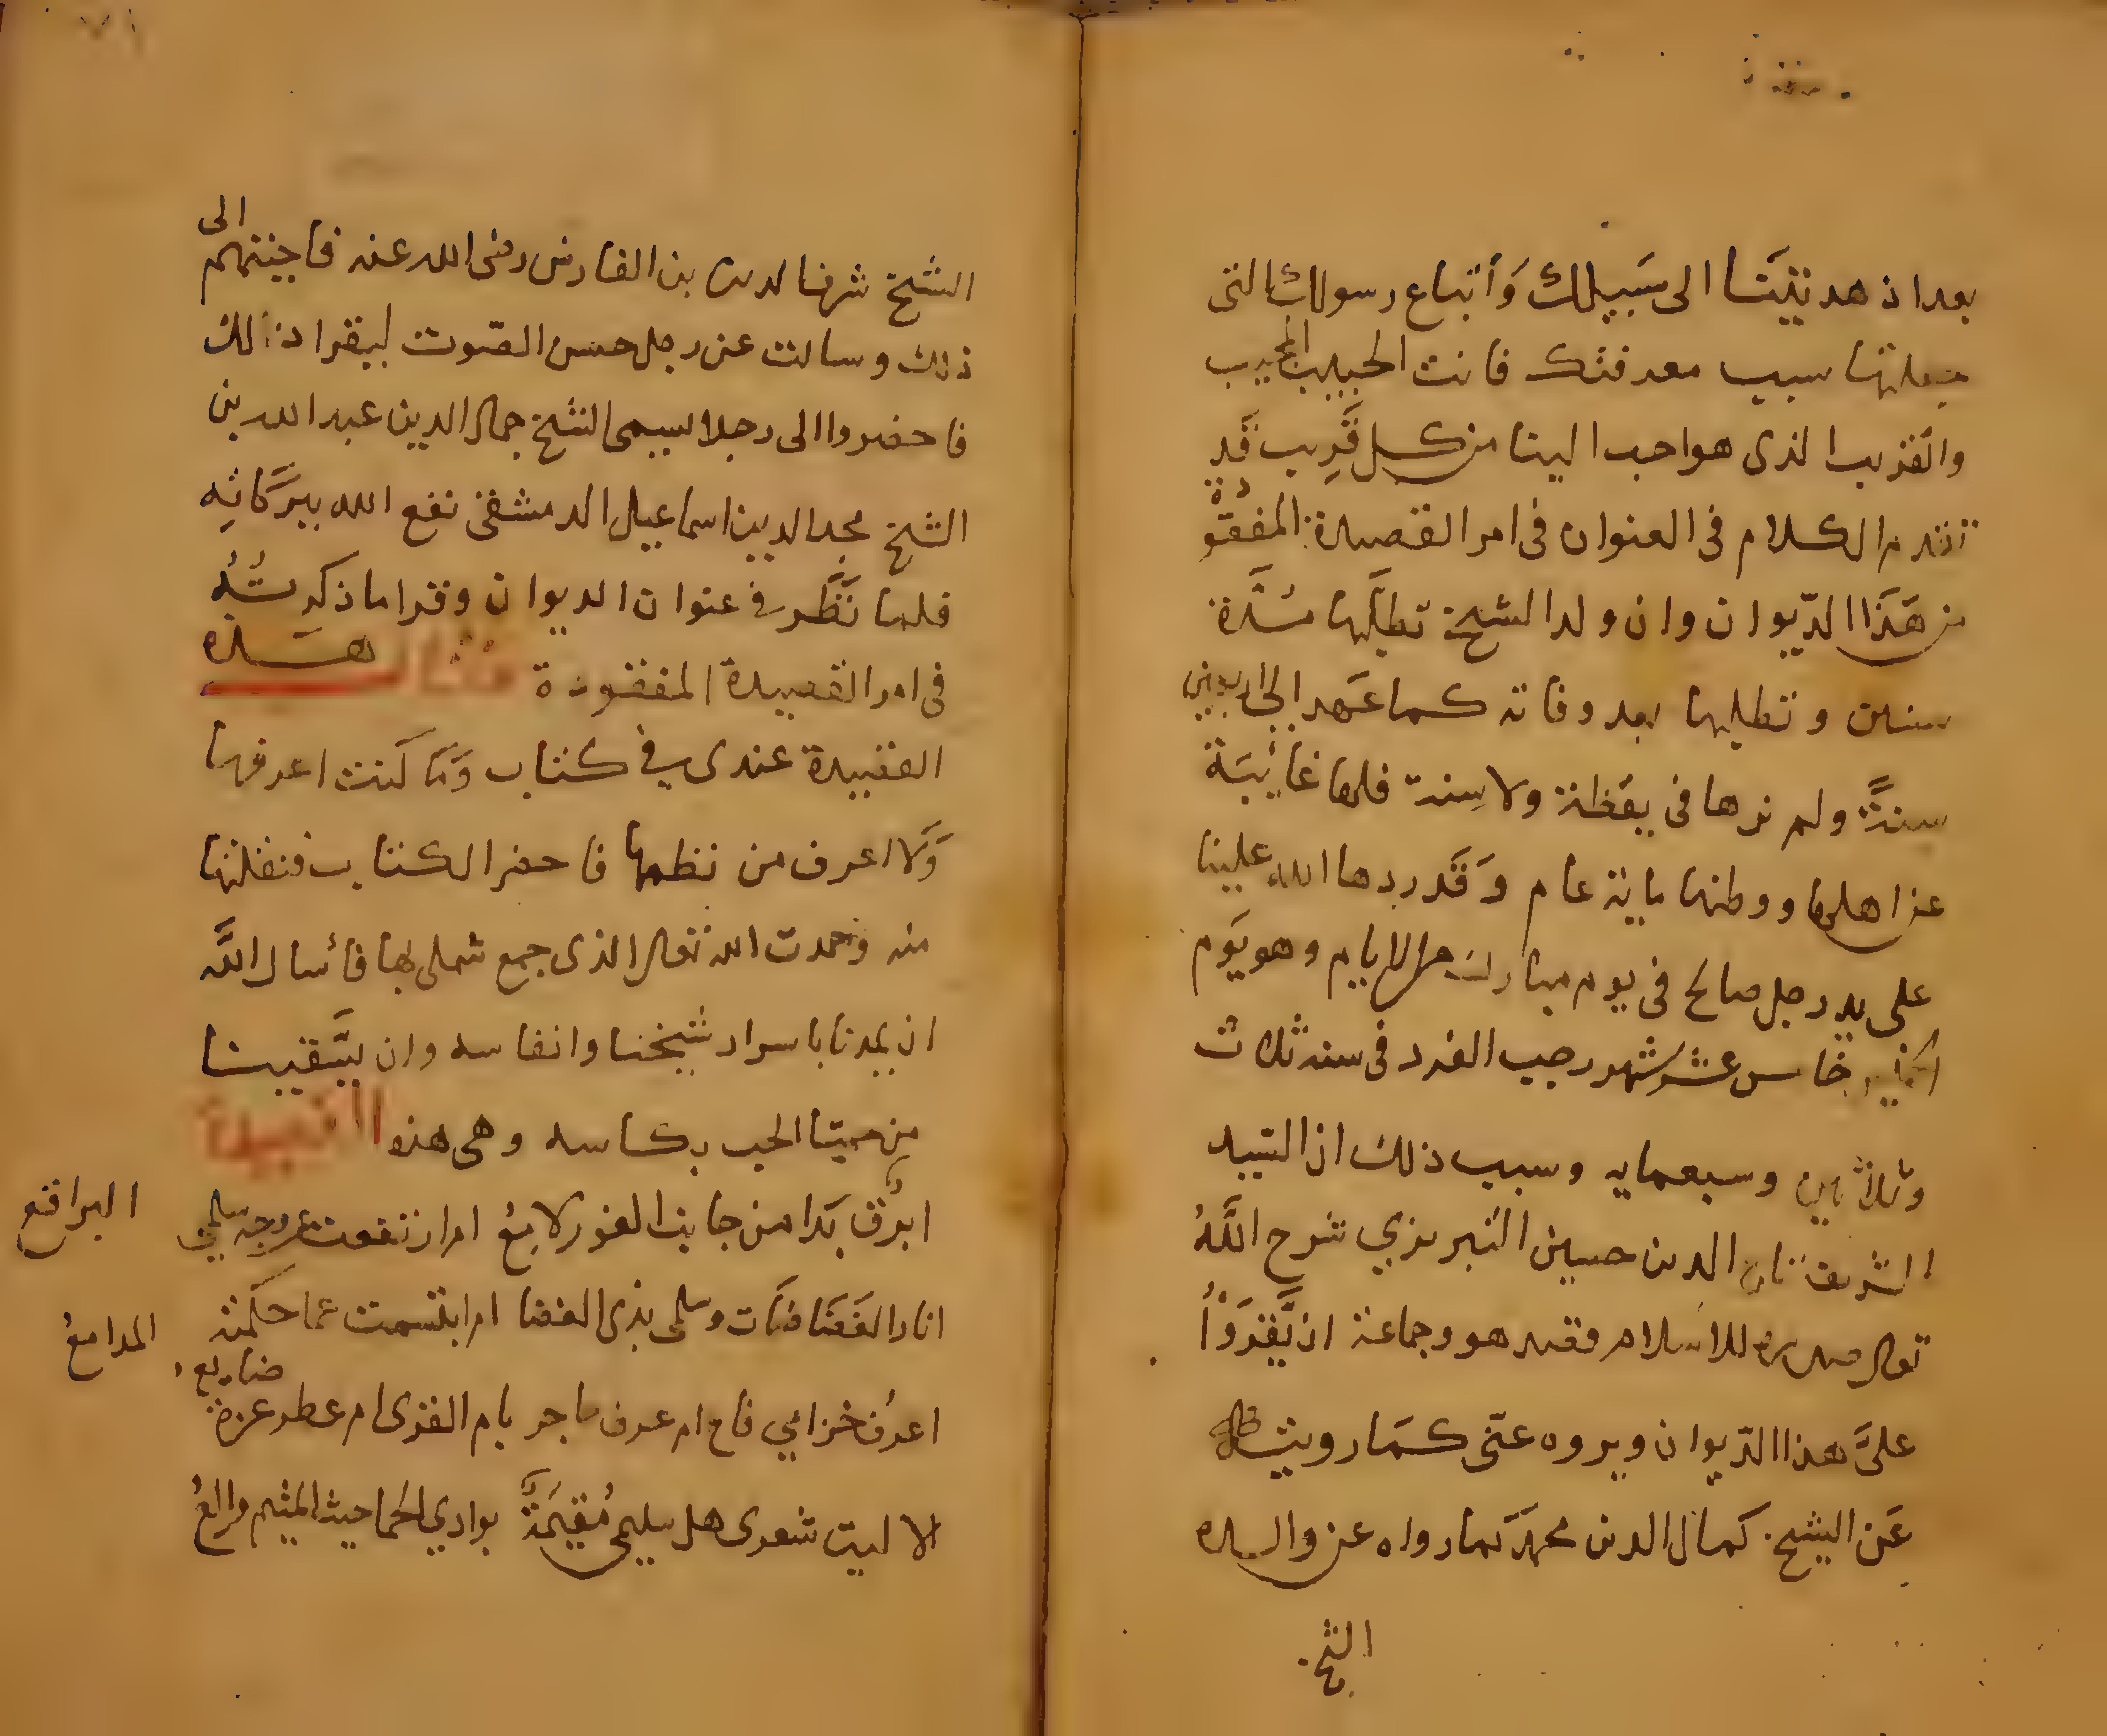 بعد اذ هديتنا الى سبيلك وأتباع رسولك التى
جعلتها سبب معرفتك فانت الحبيب المجيب
والقريب الذى هو احب الينا من كل قريب قد
تقدم الكلام فى العنوان فى امر القصيدة المفقودة
من هَذَا الدّيوان وان ولد الشيخ تطلّبها مُدَّة
سنين وتطلبها بعد وفاته كما عَهد الى اربعين
سنةً ولم نرها فى يقظة ولا سِنة فلها غائبَة
عن اهلها ووطنها ماية عام وَقَد ردها الله علينا
على يد رجل صالح فى يوم مبارك من الايام وهو يَوم
خامس عشر شهر رجب الفرد فى سنة ثلاث
وثلاثين وسبعمايه وسبب ذلك ان السّيد
الشريف الدين حسين التبريزي شرح اللَّهُ
تعالى صدره للاسلام قصد هو وجماعة ان يَّقرَوْاُ
علىَّ هذا الدّيوان ويروه عنّى كَمَا رويته
عَن الشيخ كمال الدين محمّد كما رواه عن والده
الشيخ
الشيخ شرف الدين بن الفارض رضى الله عنه فاجبتهم الى
ذلك وسالت عن رجل حسن الصّوت ليقرا ذلك
فاحضروا الى رجلا يسمى الشيخ جمال الدين عبد الله بن
الشيخ مجد الدين اسماعيل الدمشقى نفع الله ببرَكاتِه
فلما نَظَر فى عنوان الديوان وقرا ما ذكرتُهُ
فى امر القصيدة المفقودة فقال هَذه
القصيدة عندى في كتاب وَمَا كنت اعرفها
وَلا اعرف من نظمها فاحضر الكتاب فنقلتها
منه وحمدت الله تعالى الذى جمع شملى بها فأسال اللَّه
ان يمدنا باسرار شيخنا وانفاسه وان يَّسقينا
من حميّا الحب بكاسه وهى هذه القصيدة
ابرْق بَدا من جانب الغور لامِعُ ام ارتفعت عن وجه سلمى
البراقع
انار الغَضَا ضَآت وسلمى بذى الغضا ام ابتسمت عما حكته
المدامعُ
اعرْف خزامي فاح ام عرف حاجر بام القرى ام عطر عزة
ضايع
الا ليت شعرى هل سليمى مُقيمَةٌ بوادي الحما حيث المتيم والعُ